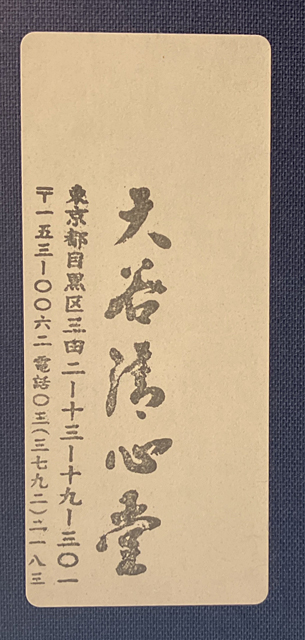 大谷清心堂
東京都目黒区三田二ー十三ー十九ー三〇一
〒一五三ー〇〇六二 電話〇三(三七九二)二一八三